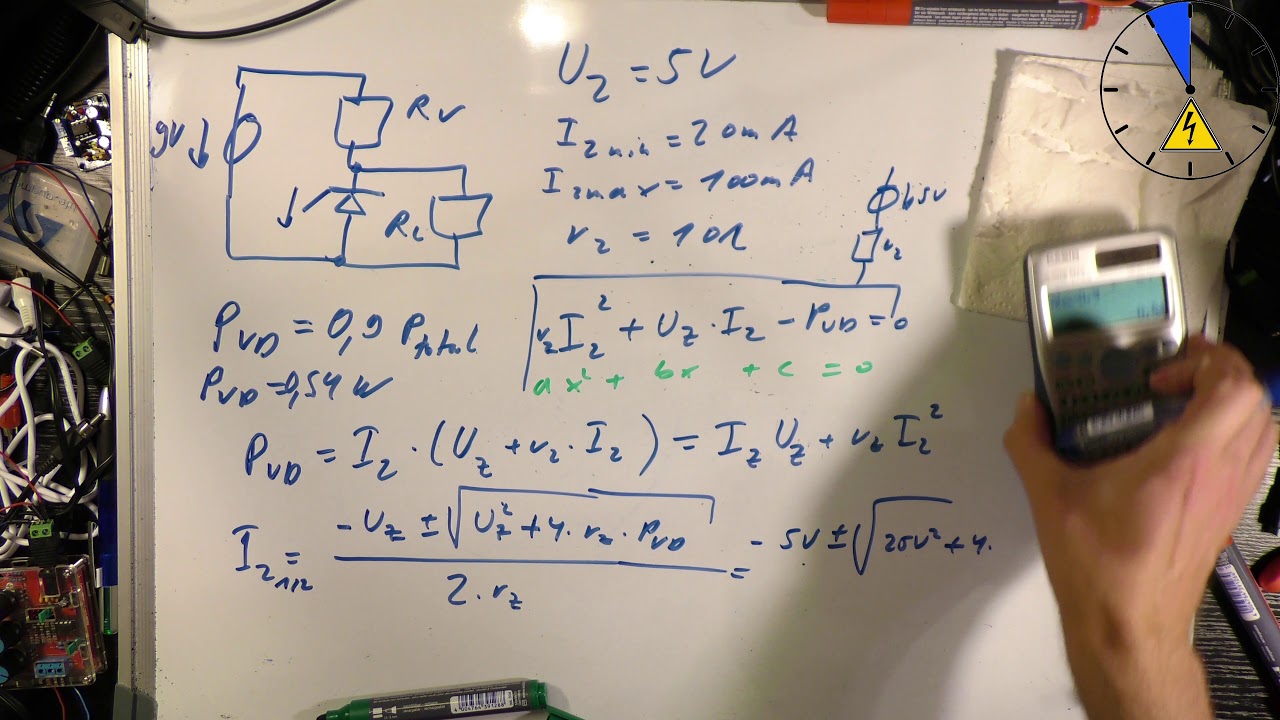 9V
R_V
R_L
U_Z = 5V
I_Z min = 20mA
I_Z max = 100mA
r_Z = 10Ω
6,5V
r_Z
P_VD = 0,9 P_total
P_VD = 0,54 W
r_Z I_Z² + U_Z · I_Z - P_VD = 0
ax² + bx + c = 0
P_VD = I_Z · (U_Z + r_Z · I_Z) = I_Z U_Z + r_Z I_Z²
I_Z 1/2 = (-U_Z ± √(U_Z² + 4 · r_Z · P_VD)) / (2 · r_Z) = - 5V ± √(25V² + 4 ·